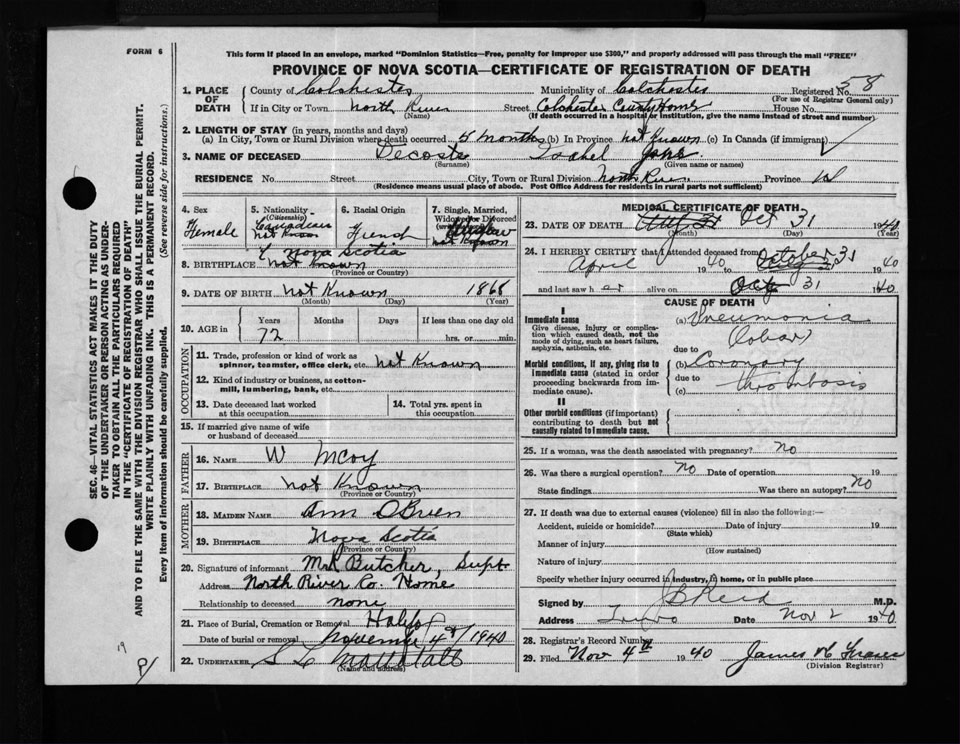 FORM 6
This form if placed in an envelope, marked "Dominion Statistics—Free, penalty for improper use $300," and properly addressed will pass through the mail "FREE"
PROVINCE OF NOVA SCOTIA—CERTIFICATE OF REGISTRATION OF DEATH
1. PLACE OF DEATH County of Colchester Municipality of Colchester Registered No. 58
(For use of Registrar General only)
If in City or Town North River Street Colchester County Home House No.
(Name) (If death occurred in a hospital or institution, give the name instead of street and number)
2. LENGTH OF STAY (in years, months and days)
(a) In City, Town or Rural Division where death occurred 5 months (b) In Province not Known (c) In Canada (if immigrant)
3. NAME OF DECEASED Decoste Isabel
(Surname) (Given name or names)
RESIDENCE No. Street City, Town or Rural Division North River Province
(Residence means usual place of abode. Post Office Address for residents in rural parts not sufficient)
4. Sex Female
5. Nationality (Citizenship) Canadian not Known
6. Racial Origin French
7. Single, Married, Widowed or Divorced not Known
8. BIRTHPLACE Nova Scotia
not Known
(Province or Country)
9. DATE OF BIRTH not Known 1868
(Month) (Day) (Year)
10. AGE in Years Months Days If less than one day old
72 hrs. or min.
OCCUPATION
11. Trade, profession or kind of work as spinner, teamster, office clerk, etc. not Known
12. Kind of industry or business, as cotton-mill, lumbering, bank, etc.
13. Date deceased last worked at this occupation
14. Total yrs. spent in this occupation
15. If married give name of wife or husband of deceased
FATHER
16. NAME W McCoy
17. BIRTHPLACE not Known
(Province or Country)
MOTHER
18. MAIDEN NAME Ann O'Brien
19. BIRTHPLACE Nova Scotia
(Province or Country)
20. Signature of informant Butcher, Supt
Address North River Co. Home
Relationship to deceased none
21. Place of Burial, Cremation or Removal Halifax
Date of burial or removal November 4th 1940
22. UNDERTAKER
(Name and address)
MEDICAL CERTIFICATE OF DEATH
23. DATE OF DEATH Oct 31 1940
(Month) (Day) (Year)
24. I HEREBY CERTIFY that I attended deceased from
April 1940 to October 31 1940
and last saw her alive on Oct 31 1940
CAUSE OF DEATH
I
Immediate cause (a) Pneumonia
Give disease, injury or complication which caused death, not the mode of dying, such as heart failure, asphyxia, asthenia, etc.
Lobar
due to
Morbid conditions, if any, giving rise to immediate cause (stated in order proceeding backwards from immediate cause).
(b) Coronary
due to thrombosis
(c)
II
Other morbid conditions (if important) contributing to death but not causally related to immediate cause.
25. If a woman, was the death associated with pregnancy? No
26. Was there a surgical operation? No Date of operation 19
State findings Was there an autopsy? No
27. If death was due to external causes (violence) fill in also the following:—
Accident, suicide or homicide? Date of injury 19
(State which)
Manner of injury
(How sustained)
Nature of injury
Specify whether injury occurred in industry, in home, or in public place
Signed by J B Reid M.D.
Address Truro Date Nov 2 1940
28. Registrar's Record Number
29. Filed Nov 4th 1940 James Fraser
(Division Registrar)
SEC. 46—VITAL STATISTICS ACT MAKES IT THE DUTY OF THE UNDERTAKER OR PERSON ACTING AS UNDERTAKER TO OBTAIN ALL THE PARTICULARS REQUIRED IN THE "CERTIFICATE OF REGISTRATION OF DEATH" AND TO FILE THE SAME WITH THE DIVISION REGISTRAR WHO SHALL ISSUE THE BURIAL PERMIT.
WRITE PLAINLY WITH UNFADING INK. THIS IS A PERMANENT RECORD.
Every item of information should be carefully supplied. (See reverse side for instructions.)